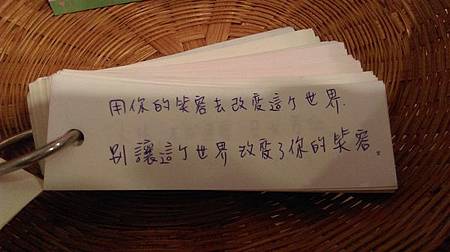 用你的笑容去改變這个世界.
別讓這个世界改變了你的笑容。